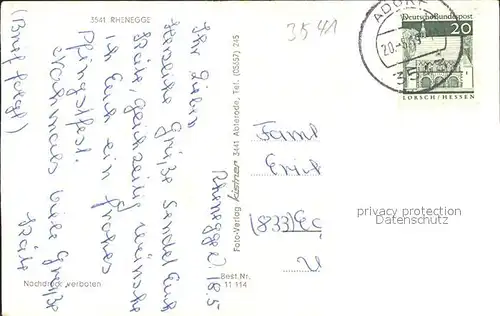 3541 RHENEGGE
3541
ADORF
20.-5.
354
Deutsche Bundespost
20
LORSCH/HESSEN
Rhenegge d. 18.5
Ihr Lieben
Herzliche Grüße sendet Euch
Käte, gleichzeitig wünsche
ich Euch ein frohes
Pfingstfest.
Nochmals viele Grüße
Käte
(Brief folgt)
Foto-Verlag Kästner 3441 Abterode, Tel. (05657) 245
Faml
Erich
(833) Eg
privacy protection
Datenschutz
Nachdruck verboten
Best.Nr.
11 114